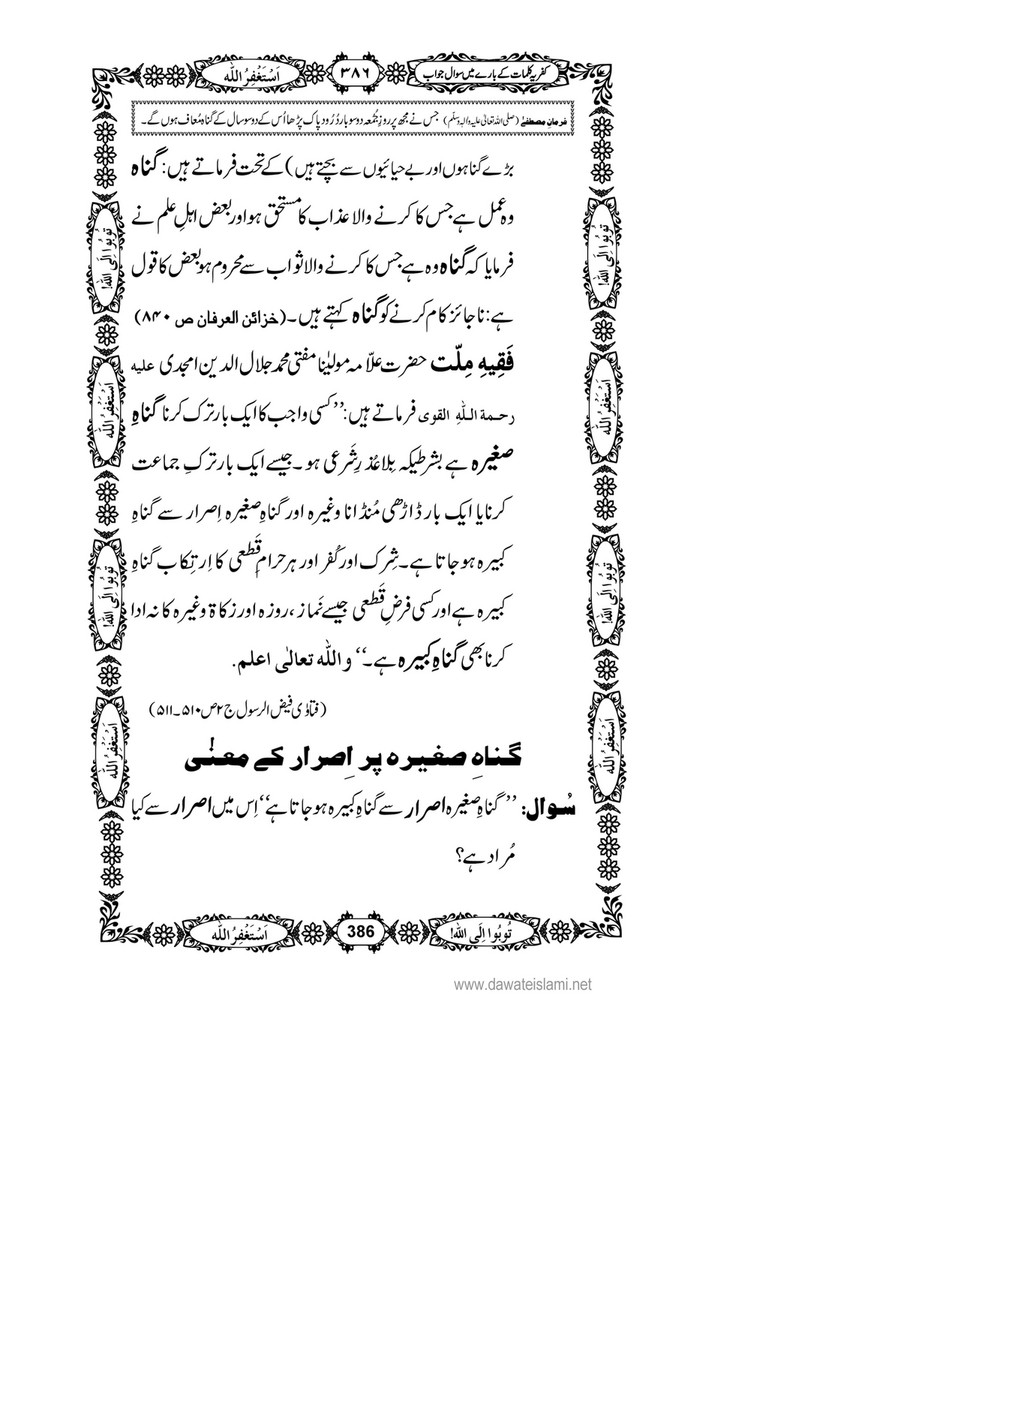 کفریہ کلمات کے بارے میں سوال جواب
۳۸۶
اَسْتَغْفِرُ اللّٰہ
فرمانِ مصطفٰے (صلی اللہ تعالیٰ علیہ والہٖ وسلّم) جس نے مجھ پر روزِ جُمُعہ دو سو بار دُرُودِ پاک پڑھا اُس کے دو سو سال کے گناہ مُعاف ہوں گے۔
بڑے گناہوں اور بے حیائیوں سے بچتے ہیں) کے تحت فرماتے ہیں: گناہ
وہ عمل ہے جس کا کرنے والا عذاب کا مستحق ہو اور بعض اہلِ علم نے
فرمایا کہ گناہ وہ ہے جس کا کرنے والا ثواب سے محروم ہو بعض کا قول
ہے: ناجائز کام کرنے کو گناہ کہتے ہیں۔ (خزائن العرفان ص ۸۴۰)
فَقِیہِ مِلّت حضرت علّامہ مولیٰنا مفتی محمد جلال الدین امجدی علیہ
رحمۃ اللہِ القوی فرماتے ہیں: ’’کسی واجب کا ایک بار ترک کرنا گناہِ
صغیرہ ہے بشرطیکہ بِلا عُذرِ شَرعی ہو۔ جیسے ایک بار ترکِ جماعت
کرنا یا ایک بار ڈاڑھی مُنڈانا وغیرہ اور گناہِ صغیرہ اِصرار سے گناہِ
کبیرہ ہو جاتا ہے۔ شِرک اور کُفر اور ہر حرامِ قَطعی کا اِرتِکاب گناہِ
کبیرہ ہے اور کسی فرضِ قَطعی جیسے نَماز، روزہ اور زکاۃ وغیرہ کا نہ ادا
کرنا بھی گناہِ کبیرہ ہے۔‘‘ واللہ تعالٰی اعلم.
(فتاوٰی فیض الرسول ج۲ ص۵۱۰۔۵۱۱)
گناہِ صغیرہ پر اِصرار کے معنٰی
سُوال: ’’گناہِ صغیرہ اصرار سے گناہِ کبیرہ ہو جاتا ہے‘‘ اِس میں اصرار سے کیا
مُراد ہے؟
تُوبُوا اِلَی اللہ!
اَسْتَغْفِرُ اللّٰہ
تُوبُوا اِلَی اللہ!
اَسْتَغْفِرُ اللّٰہ
تُوبُوا اِلَی اللہ!
اَسْتَغْفِرُ اللّٰہ
تُوبُوا اِلَی اللہ!
اَسْتَغْفِرُ اللّٰہ
تُوبُوا اِلَی اللہ!
386
اَسْتَغْفِرُ اللّٰہ
www.dawateislami.net